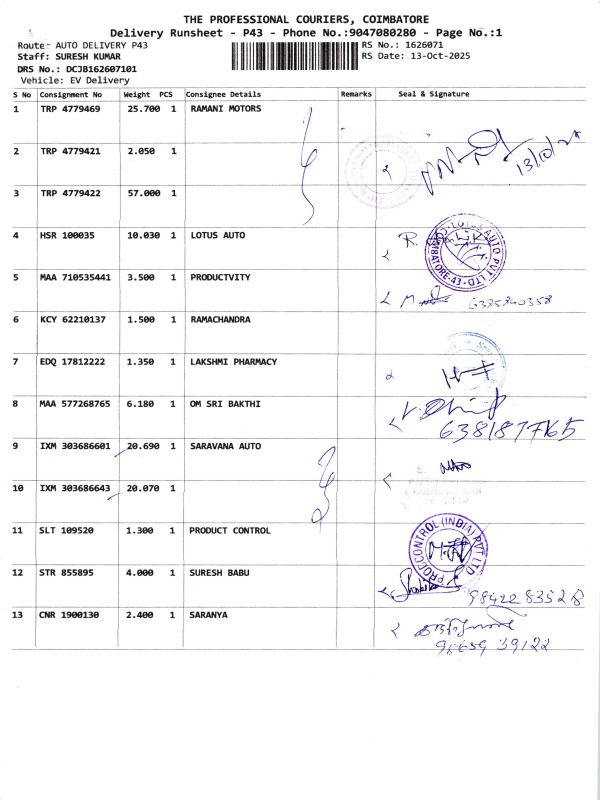 THE PROFESSIONAL COURIERS, COIMBATORE
Delivery Runsheet - P43 - Phone No.:9047080280 - Page No.:1
Route- AUTO DELIVERY P43
RS No.: 1626071
Staff: SURESH KUMAR
RS Date: 13-Oct-2025
DRS No.: DCJB162607101
Vehicle: EV Delivery
S No Consignment No Weight PCS Consignee Details Remarks Seal & Signature
1 TRP 4779469 25.700 1 RAMANI MOTORS
2 TRP 4779421 2.050 1
3 TRP 4779422 57.000 1
4 HSR 100035 10.030 1 LOTUS AUTO
5 MAA 710535441 3.500 1 PRODUCTVITY
6 KCY 62210137 1.500 1 RAMACHANDRA
7 EDQ 17812222 1.350 1 LAKSHMI PHARMACY
8 MAA 577268765 6.180 1 OM SRI BAKTHI
9 IXM 303686601 20.690 1 SARAVANA AUTO
10 IXM 303686643 20.070 1
11 SLT 109520 1.300 1 PRODUCT CONTROL
PRODCONTROL (INDIA) PVT LTD
12 STR 855895 4.000 1 SURESH BABU
9842283528
13 CNR 1900130 2.400 1 SARANYA